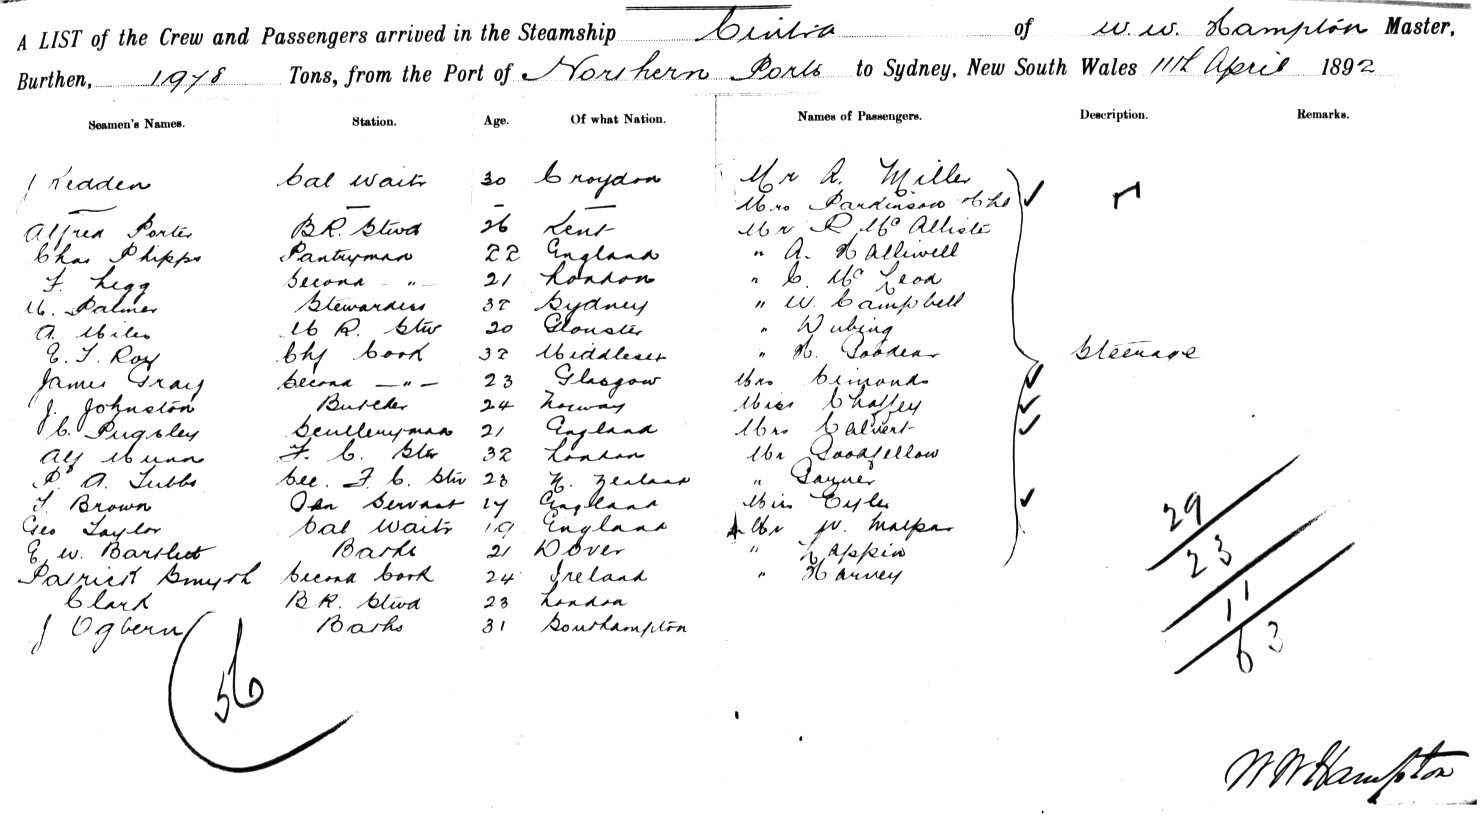 A LIST of the Crew and Passengers arrived in the Steamship Cintra of W. W. Hampton Master,
Burthen, 1978 Tons, from the Port of Northern Ports to Sydney, New South Wales 11th April 1892
Seamen's Names. Station. Age. Of what Nation. Names of Passengers. Description. Remarks.
J Kedden Cal Waitr 30 Croydon Mr A. Miller
Mrs Parkinson & Chd
Alfred Porter B.R. Stwd 26 Kent Mr R McAllister
Chas Phipps Pantryman 22 England " A. Halliwell
F. Legg Second - " - 21 London " C. McLeod
M. Palmer Stewardess 32 Sydney " W. Campbell
A. Miles M R. Stw 20 Glouster "
E. T. Roy Chf Cook 32 Middlesex " H. Goodear Steerage
James Gray Second - " - 23 Glasgow Mrs Simonds
J. Johnston Butcher 24 Norway Miss Chaffey
C. Pugsley Sculleryman 21 England Mrs Calvert
Alf Munn F. C. Stw 32 London Mr Goodfellow
P. A. Tubbs Sec. F. C. Stw 23 N. Zealand " Garner
T. Brown Servant 17 England Miss
Geo Taylor Cal Waitr 19 England Mr W. Malpas
E. W. Bartlett Barks 21 Dover " Lappin
Patrick Smyth Second Cook 24 Ireland " Harvey
Clark B R. Stwd 23 London
J Ogbern Barks 31 Southampton
56
29
23
11
63
W W Hampton